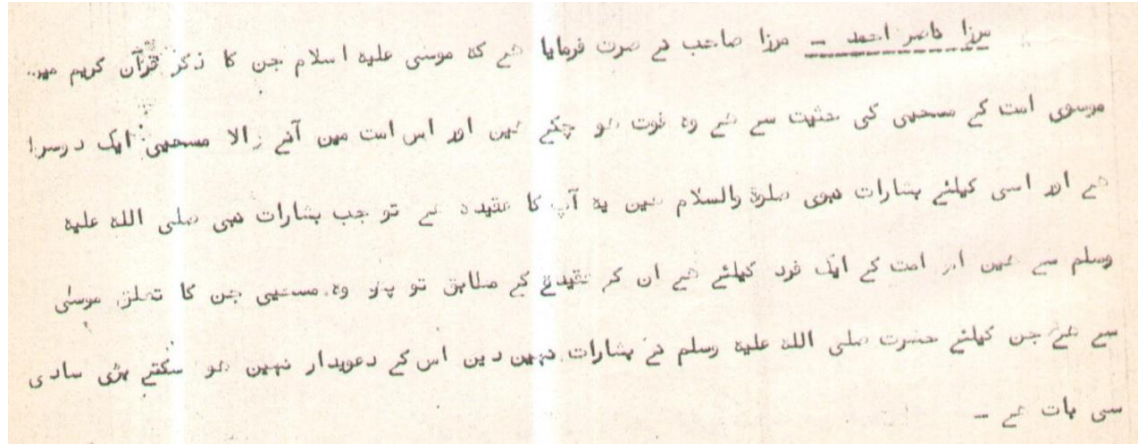 مرزا ناصر احمد ـ مرزا صاحب نے صرف فرمایا ھے کہ موسی علیہ اسلام جن کا ذکر قرآن کریم میں
موسوی امت کے مسحیی کی حثیت سے ھے وہ فوت ھو چکے ھین اور اس امت مین آنے والا مسحیی ایک دوسرا
ھے اور اسی کیلئے بشارات نبوی صلوۃ والسلام ھین یہ آپ کا عقیدہ ھے تو جب بشارات نبی صلی اللہ علیہ
وسلم سے ھین اور امت کے ایک فرد کیلئے ھے ان کے عقیدے کے مطابق تو پھر وہ مسحیی جن کا تعلق موسٰی
سے ھے جن کیلئے حضرت صلی اللہ علیہ وسلم نے بشارات نہین دین اس کے دعویدار نہین ھو سکتے بڑی سادی
سی بات ھے ـ